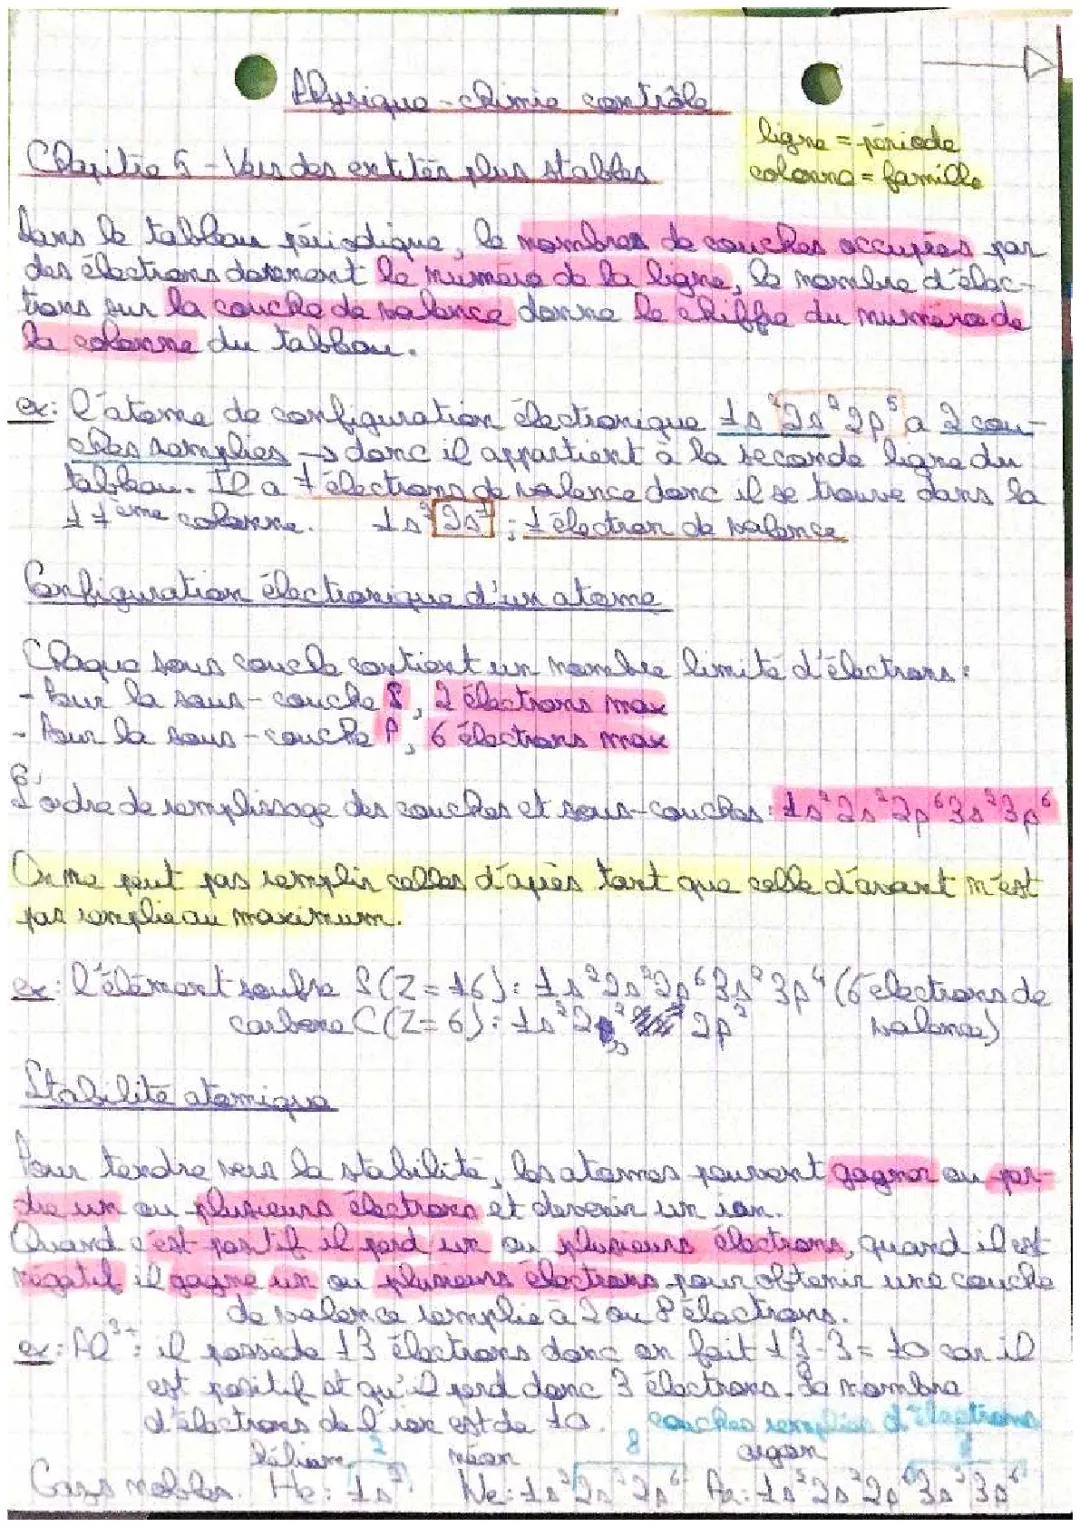 Physique-chimie contrôle
ligne = période
colonne = famille
Chapitre 5 - Vers des entités plus stables
Dans le tableau périodique, le nombres de couches occupées par
des électrons donnent le numéro de la ligne, le nombre d'élec-
trons sur la couche de valence donne le chiffre du numéro de
la colonne du tableau.
ex: l'atome de configuration électronique 1s² 2s² 2p⁵ a 2 cou-
ches remplies → donc il appartient à la seconde ligne du
tableau. Il a 7 électrons de valence donc il se trouve dans la
17ème colonne. 1s² 2s¹ : 1 électron de valence
Configuration électronique d'un atome
Chaque sous couche contient un nombre limité d'électrons :
- Pour la sous-couche S, 2 électrons max
- Pour la sous-couche P, 6 électrons max
L'ordre de remplissage des couches et sous-couches : 1s² 2s² 2p⁶ 3s² 3p⁶
On ne peut pas remplir celles d'après tant que celle d'avant n'est
pas remplie au maximum.
ex: l'élément soufre S (Z=16) : 1s² 2s² 2p⁶ 3s² 3p⁴ (6 électrons de
carbone C (Z=6) : 1s² 2s² 2p² valence)
Stabilité atomique
Pour tendre vers la stabilité, les atomes peuvent gagner ou per-
dre un ou plusieurs électrons et devenir un ion.
Quand c'est positif il perd un ou plusieurs électrons, quand il est
négatif il gagne un ou plusieurs électrons pour obtenir une couche
de valence remplie à 2 ou 8 électrons.
ex: Al³⁺ : il possède 13 électrons donc on fait 13-3 = 10 car il
est positif et qu'il perd donc 3 électrons. Le nombre
d'électrons de l'ion est de 10. couches remplies d'électrons
hélium 2 néon 8 argon 8
Gazs nobles. He : 1s² Ne : 1s² 2s² 2p⁶ Ar : 1s² 2s² 2p⁶ 3s² 3p⁶